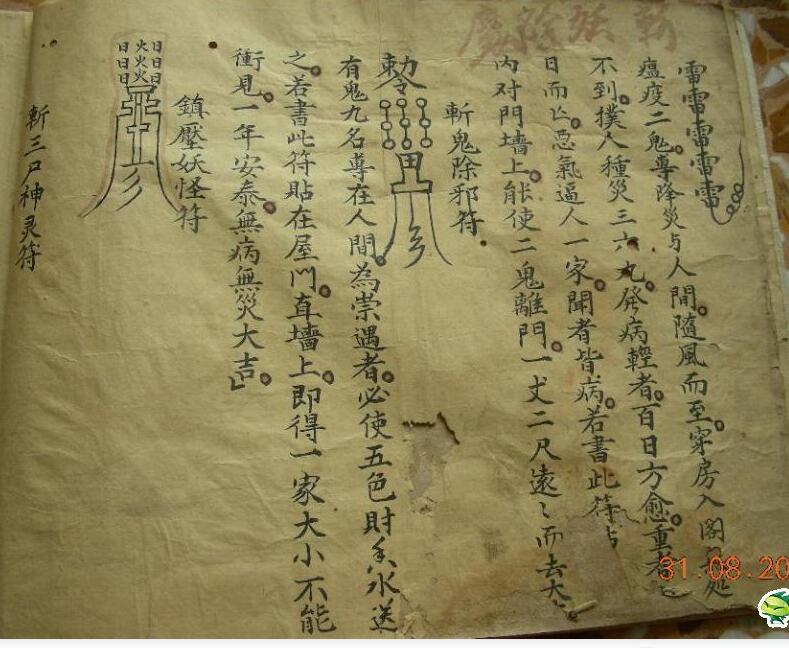 雷雷雷雷雷
瘟疫二鬼專降災与人間隨風而至穿房入閣
不到撲人種災三六九發病輕者百日方愈重者
日而亡惡氣逼人一家聞者皆病若書此符
內对門墻上能使二鬼離門一丈二尺遠〻而去大
斬鬼除邪符
敕令
有鬼九名專在人間為祟遇者必使五色財
送
之若書此符貼在屋門直墻上即得一家大小不能
衝見一年安泰無病無災大吉
鎮壓妖怪符
日日日
火火火
日日日
斬三尸神灵符
31.08.20